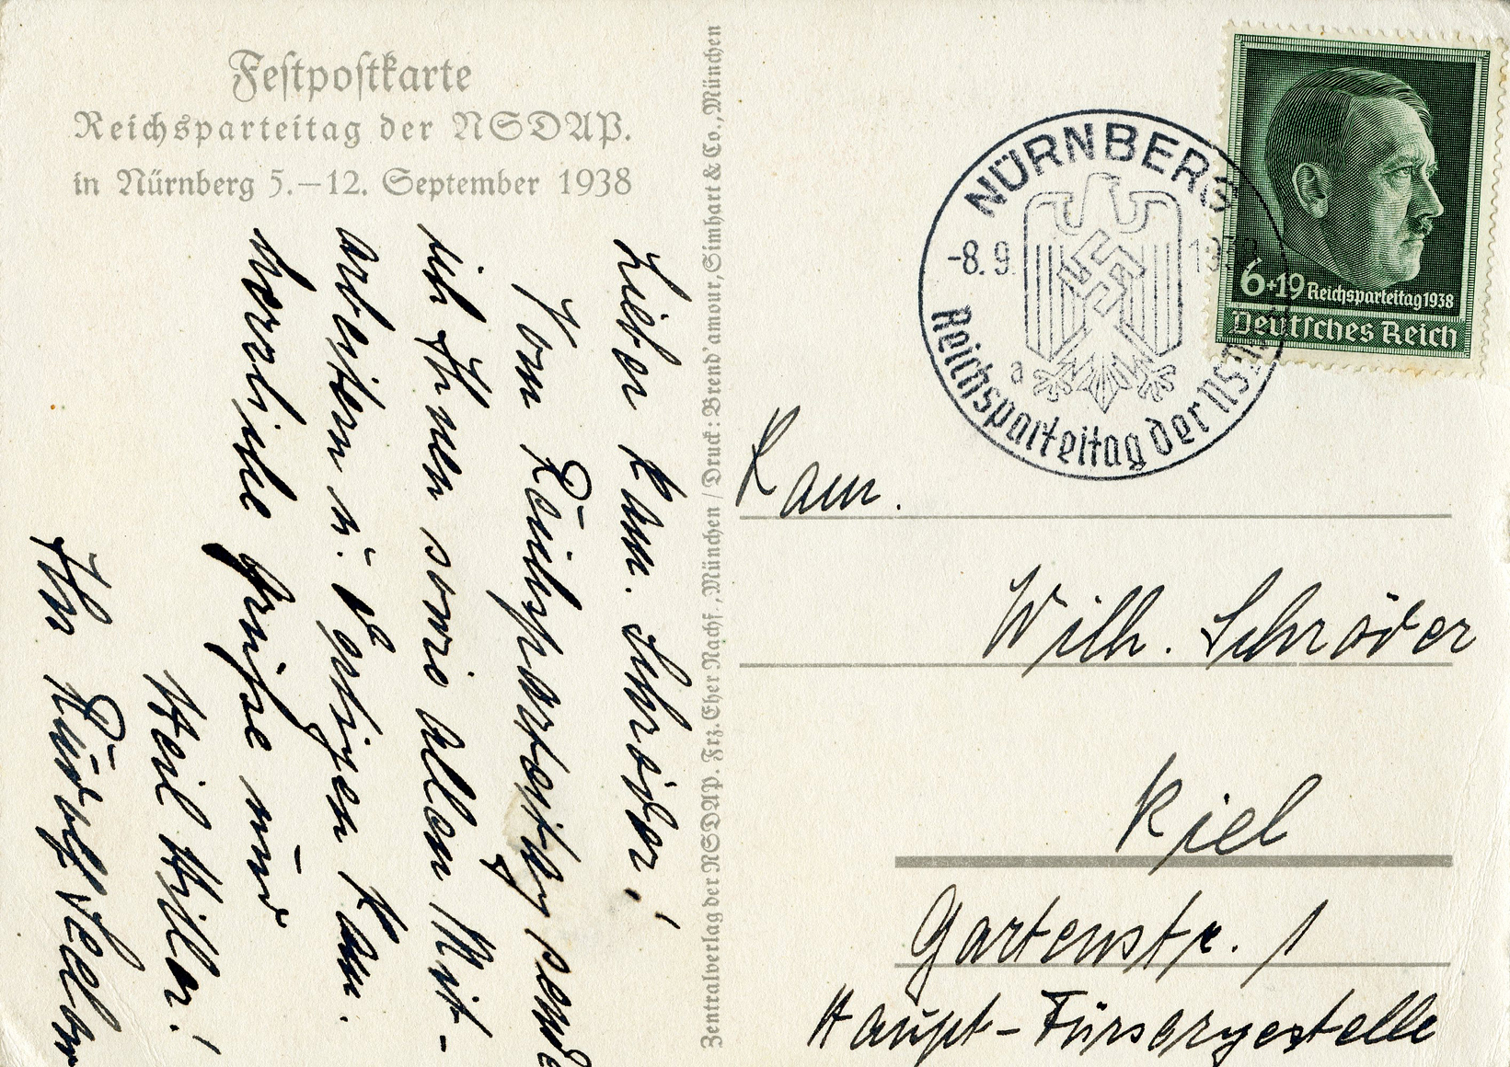 Festpostkarte
Reichsparteitag der NSDAP.
in Nürnberg 5.–12. September 1938
Lieber Kam. Schröder!
Vom Reichsparteitag sende
ich Ihnen sowie allen Mit-
arbeitern u. dortigen Kam.
herrliche Grüße und
Heil Hitler!
Ihr Rudolf
Zentralverlag der NSDAP. Frz. Eher Nachf., München / Druck: Brend'amour, Simhart & Co., München
NÜRNBERG
-8.9. 1938
a
Reichsparteitag der NSDAP
6+19 Reichsparteitag 1938
Deutsches Reich
Kam.
Wilh. Schröder
Kiel
Gartenstr. 1
Haupt-Fürsorgestelle